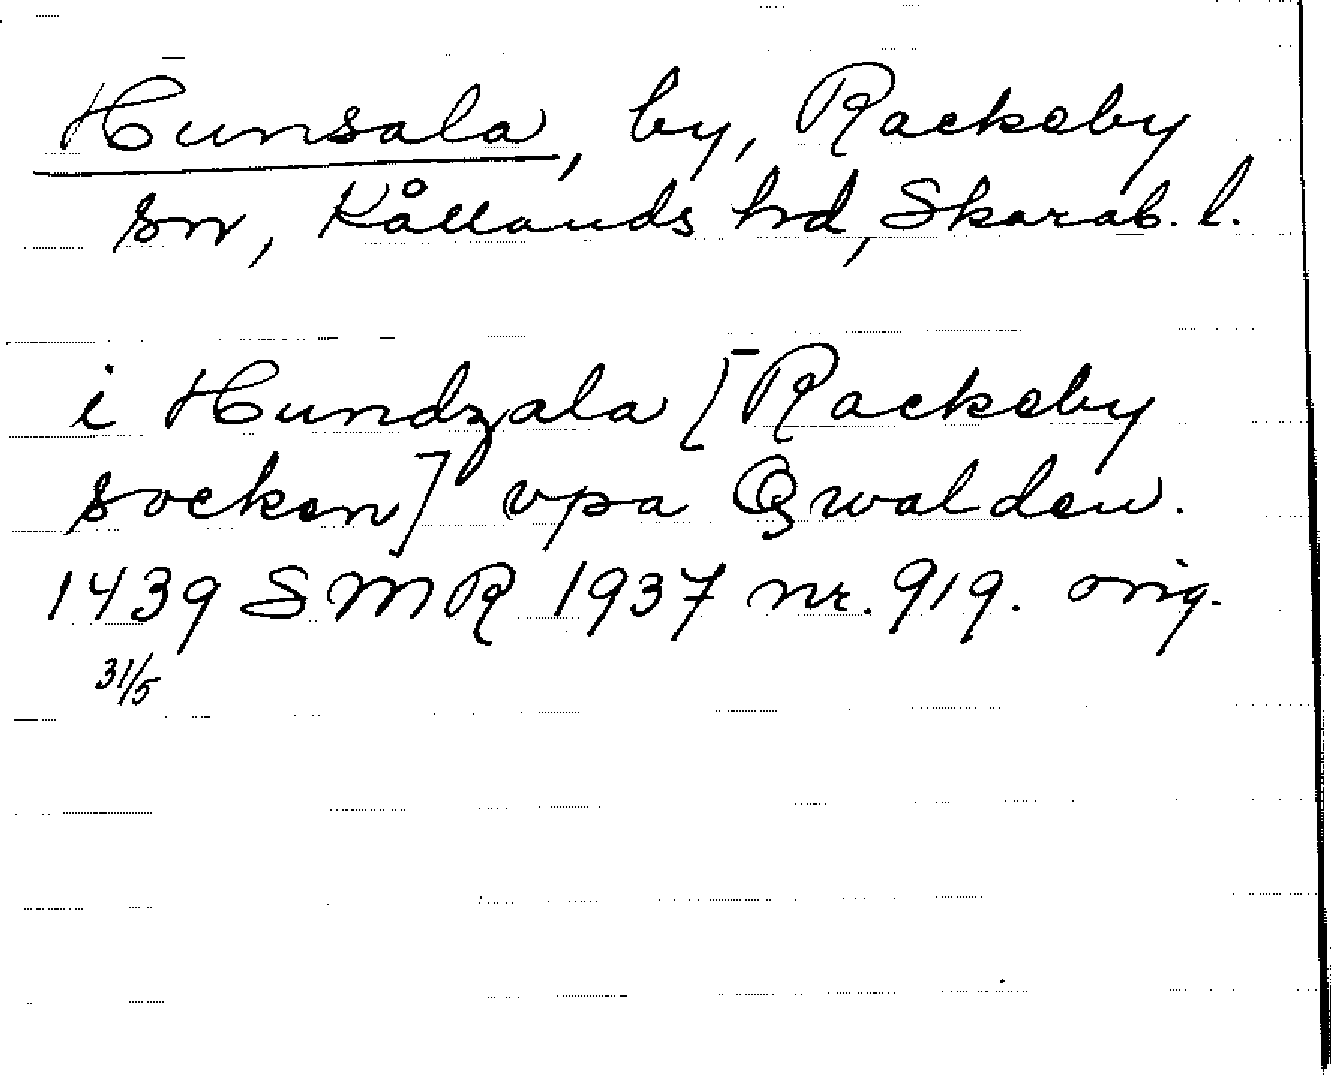 Hunsala, by, Rackeby
sn, Kållands hd, Skarab. l.
i Hundzala [Rackeby
socken] vpa Qwalden.
1439 SMR 1937 nr. 919. orig.
31/5